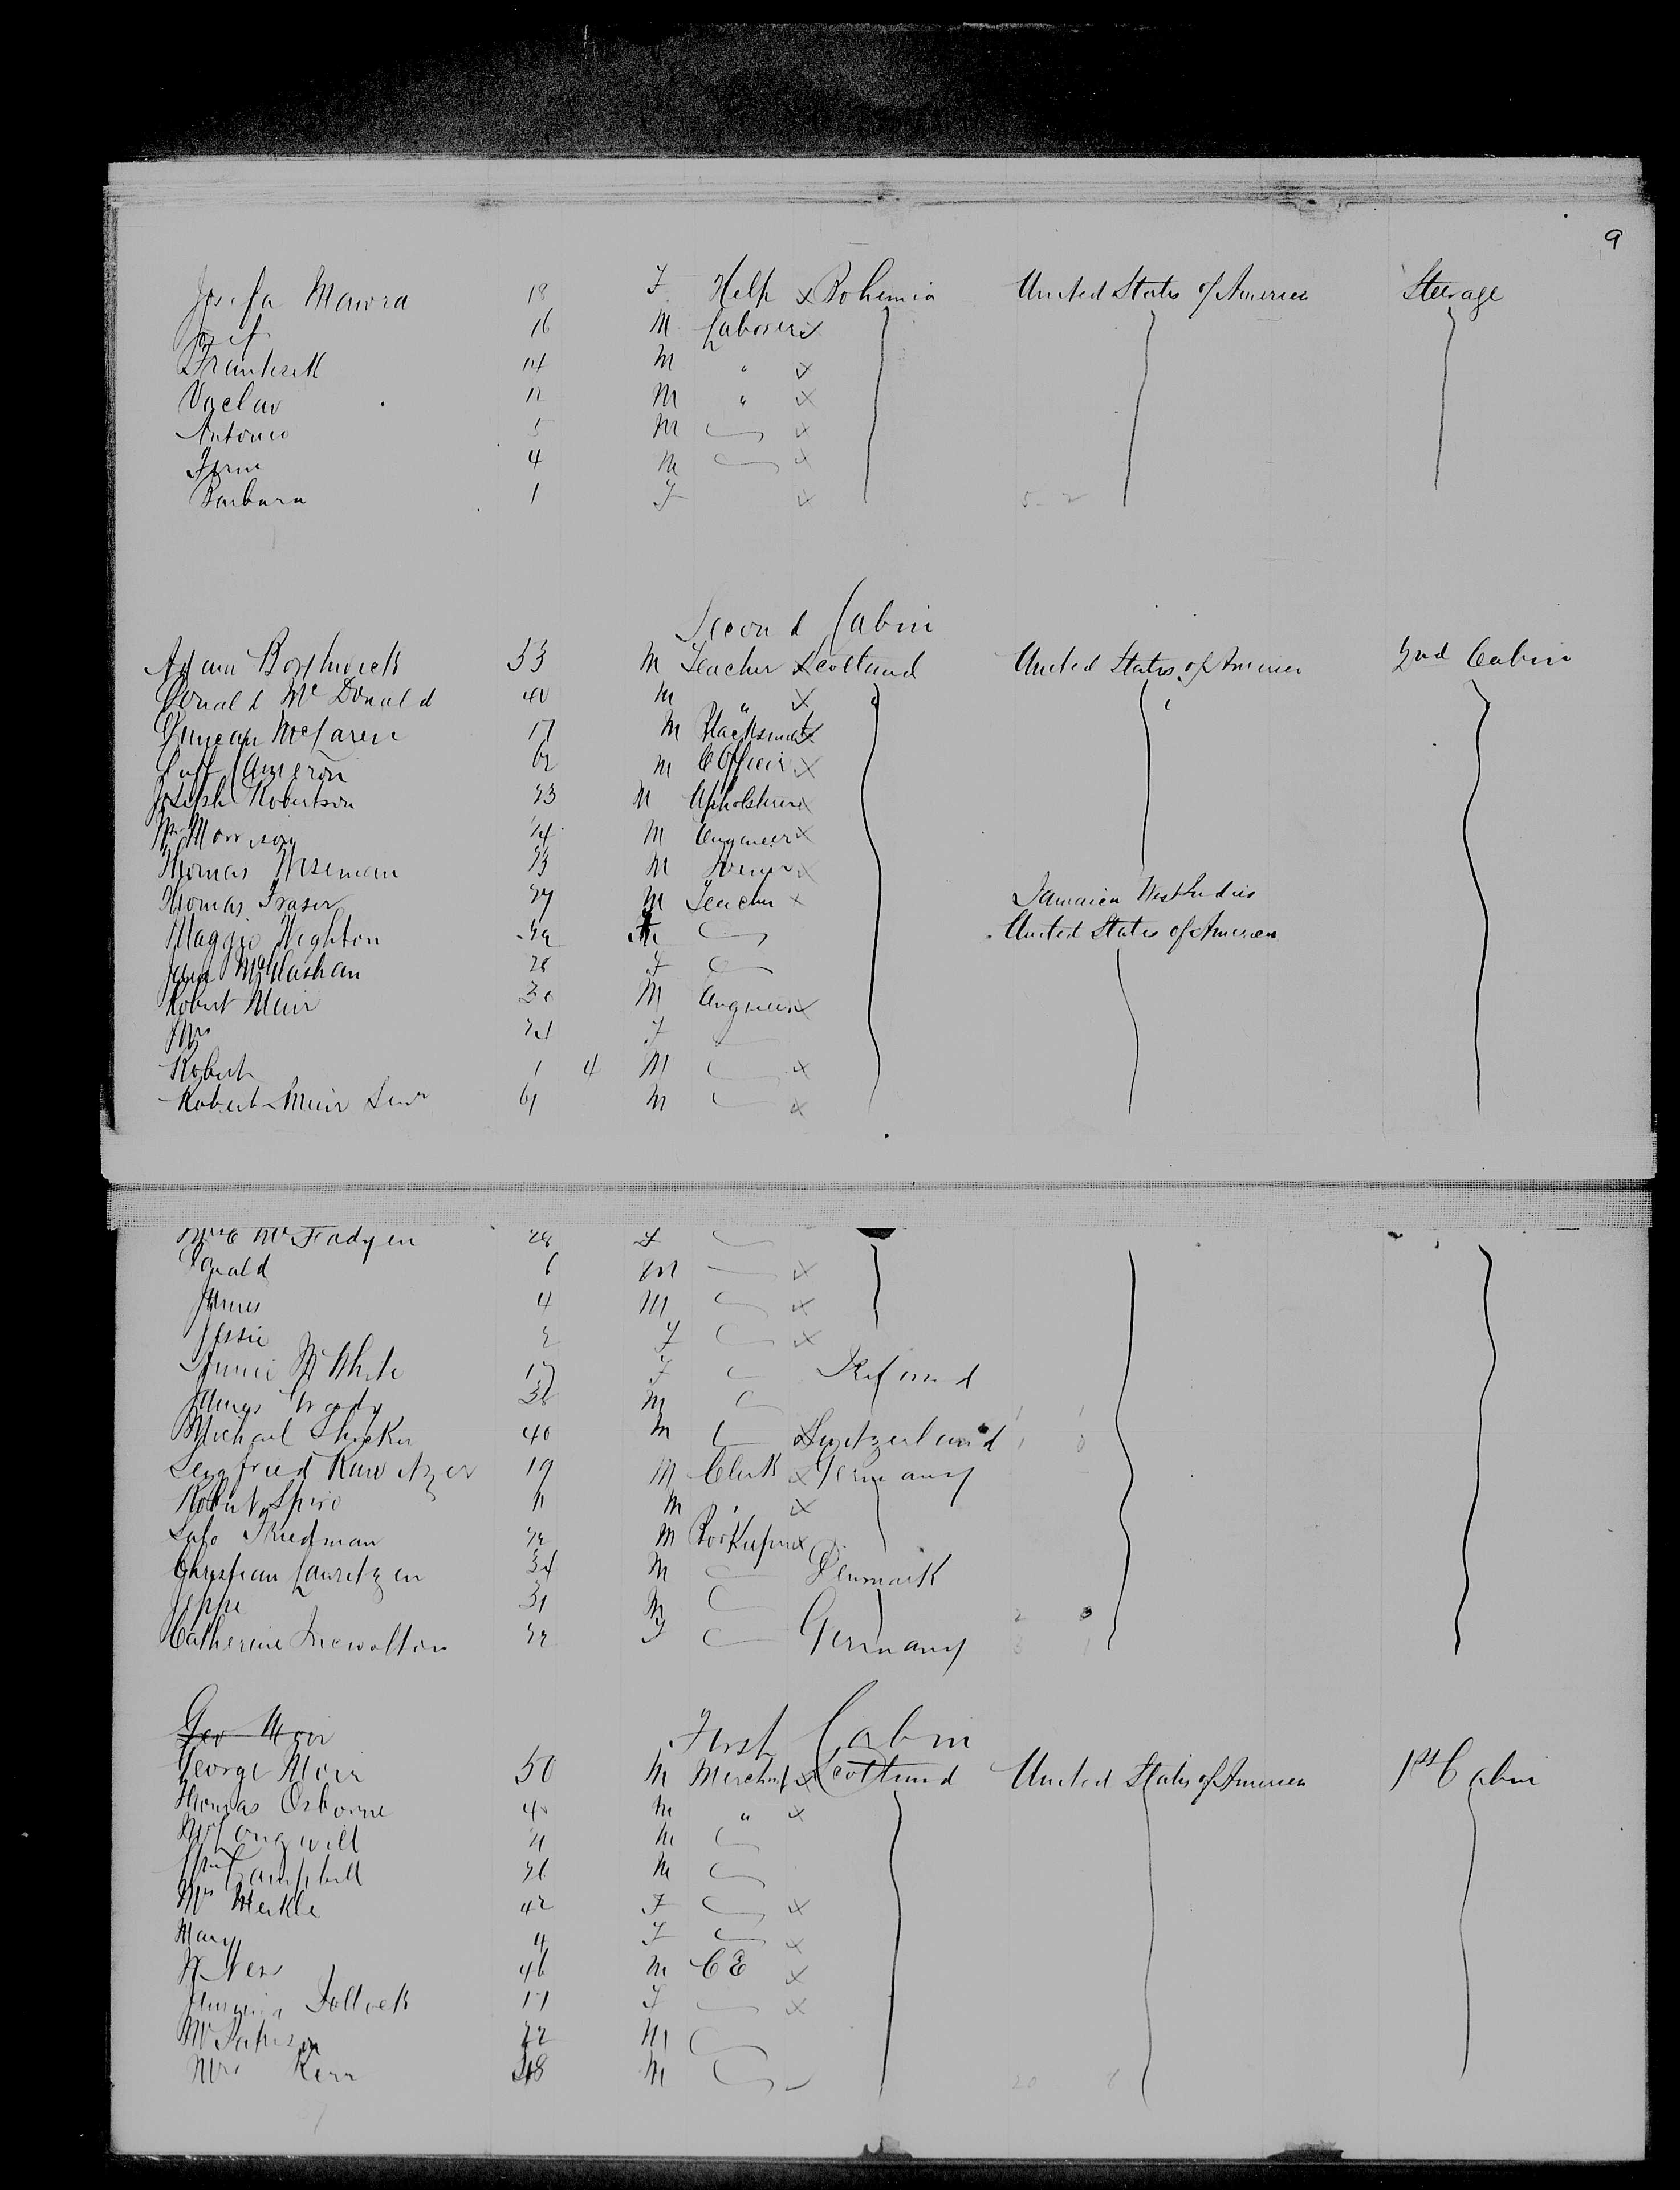 9
Josefa Mawra 18 F Help x Bohemia United States of America Steerage
Josef 16 M Labourer x
Frantisek 14 M " x
Vaclav 12 M " x
Antonio 5 M x
4 M x
Barbara 1 F x 5 2
Second Cabin
Adam Borthwick 33 M Teacher x Scotland United States of America 2nd Cabin
Donald McDonald 40 M " x "
Duncan McLaren 17 M Blacksmith x
Cameron 62 M C Officer x
Joseph Robertson 23 M Upholsterer x
Wm Morrison 24 M Engineer x
Thomas Wiseman 23 M Joiner x
Thomas Fraser 27 M Teacher x Jamaica West Indies
Maggie Wighton F United States of America
Jane McGlashan 28 F
Robert Muir 30 M Engineer x
Mrs 24 F
Robert 1 4 M x
Robert Muir Senr 61 M x
Mrs McFadyen 28 F
Donald 6 M x
James 4 M x
Jessie 2 F x
Annie McWhite 17 F Ireland
James Grady 36 M
Michael 40 M x Switzerland 1 0
Seigfried 19 M Clerk x Germany
Robert Spiro M " x
Salo Friedman 22 M Bookkeeper x
Christian Lauritzen 34 M Denmark
Jeppe 31 M
Catherine 22 F Germany 3 1
Geo Moir First Cabin
George Moir 50 M Merchant x Scotland United States of America 1st Cabin
Thomas Osborne 40 M " x
Mr Longwill 21 M
Campbell 26 M
Mrs Meikle 42 F x
Mary 4 F x
46 M CE x
Pollock 17 F x
Mr 22 M
Mrs Kerr 48 M 20